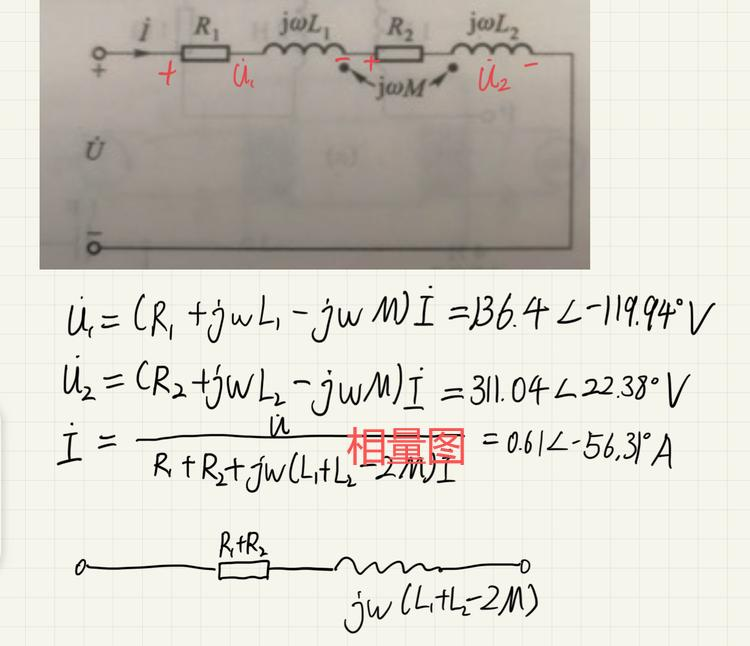 İ R₁ jωL₁ R₂ jωL₂
+ + U̇₁ - + jωM U̇₂ -
U̇
-
U̇₁ = (R₁ + jwL₁ - jwM)İ = 136.4∠-119.94°V
U̇₂ = (R₂ + jwL₂ - jwM)İ = 311.04∠22.38°V
İ = U̇ / R₁ + R₂ + jw(L₁+L₂-2M)İ = 0.61∠-56.31°A
相量图
R₁+R₂
jw(L₁+L₂-2M)